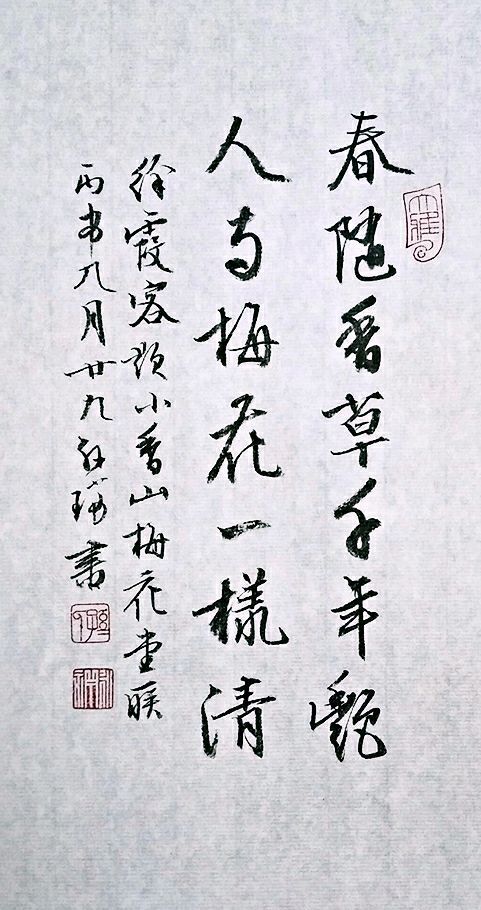 春随香草千年艷
人与梅花一樣清
徐霞客題小香山梅花堂联
丙申九月廿九 書